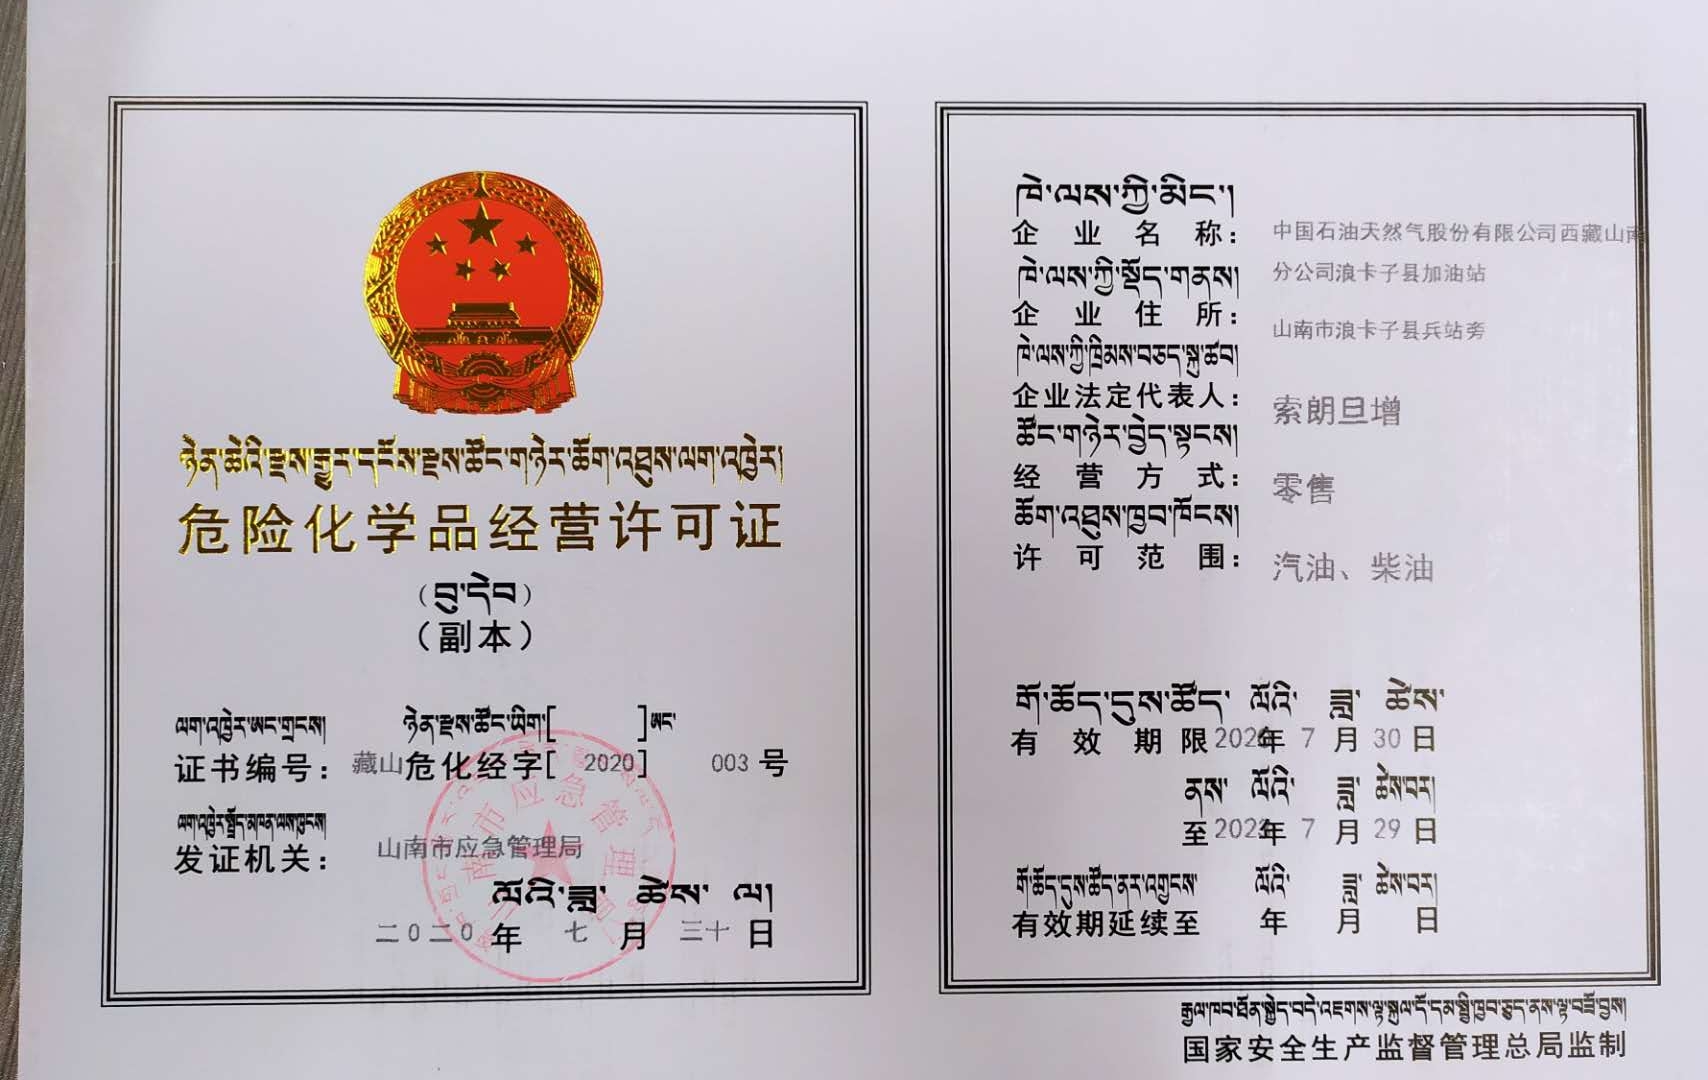 ཉེན་ཆེའི་རྫས་རྒྱུར་དངོས་རྫས་ཚོང་གཉེར་ཆོག་འཐུས་ལག་འཁྱེར།
危险化学品经营许可证
（བུ་དེབ）
（副本）
ལག་འཁྱེར་ཨང་གྲངས། ཉེན་རྫས་ཚོང་ཡིག་[ ]ཨང་
证书编号：藏山危化经字[2020]003号
ལག་འཁྱེར་སྤྲོད་མཁན་ལས་ཁུངས།
发证机关：山南市应急管理局
ལོའི་ཟླ་ ཚེས་ ལ།
二0二0年七月三十日
ཁེ་ལས་ཀྱི་མིང་།
企业名称：中国石油天然气股份有限公司西藏山南
分公司浪卡子县加油站
ཁེ་ལས་ཀྱི་སྡོད་གནས།
企业住所：山南市浪卡子县兵站旁
ཁེ་ལས་ཀྱི་ཁྲིམས་བཅད་སྐུ་ཚབ།
企业法定代表人：索朗旦增
ཚོང་གཉེར་བྱེད་སྟངས།
经营方式：零售
ཆོག་འཐུས་ཁྱབ་ཁོངས།
许可范围：汽油、柴油
གོ་ཆོད་དུས་ཚོད་ ལོའི་ ཟླ་ ཚེས་
有效期限2020年7月30日
ནས་ ལོའི་ ཟླ་ ཚེས་བར།
至2023年7月29日
གོ་ཆོད་དུས་ཚོད་ནར་འགྱངས་ ལོའི་ ཟླ་ ཚེས་བར།
有效期延续至 年 月 日
国家安全生产监督管理总局监制